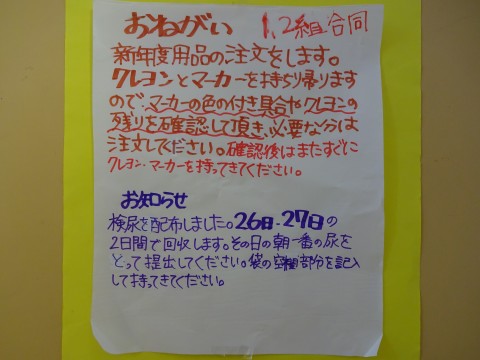 おねがい 1,2組合同
新年度用品の注文をします。
クレヨンとマーカーを持ち帰ります
ので、マーカーの色の付き具合やクレヨンの
残りを確認して頂き、必要な分は
注文してください。確認後はまたすぐに
クレヨン・マーカーを持ってきてください。
お知らせ
検尿を配布しました。26日-27日の
2日間で回収します。その日の朝一番の尿を
とって提出してください。袋の空欄部分を記入
して持ってきてください。